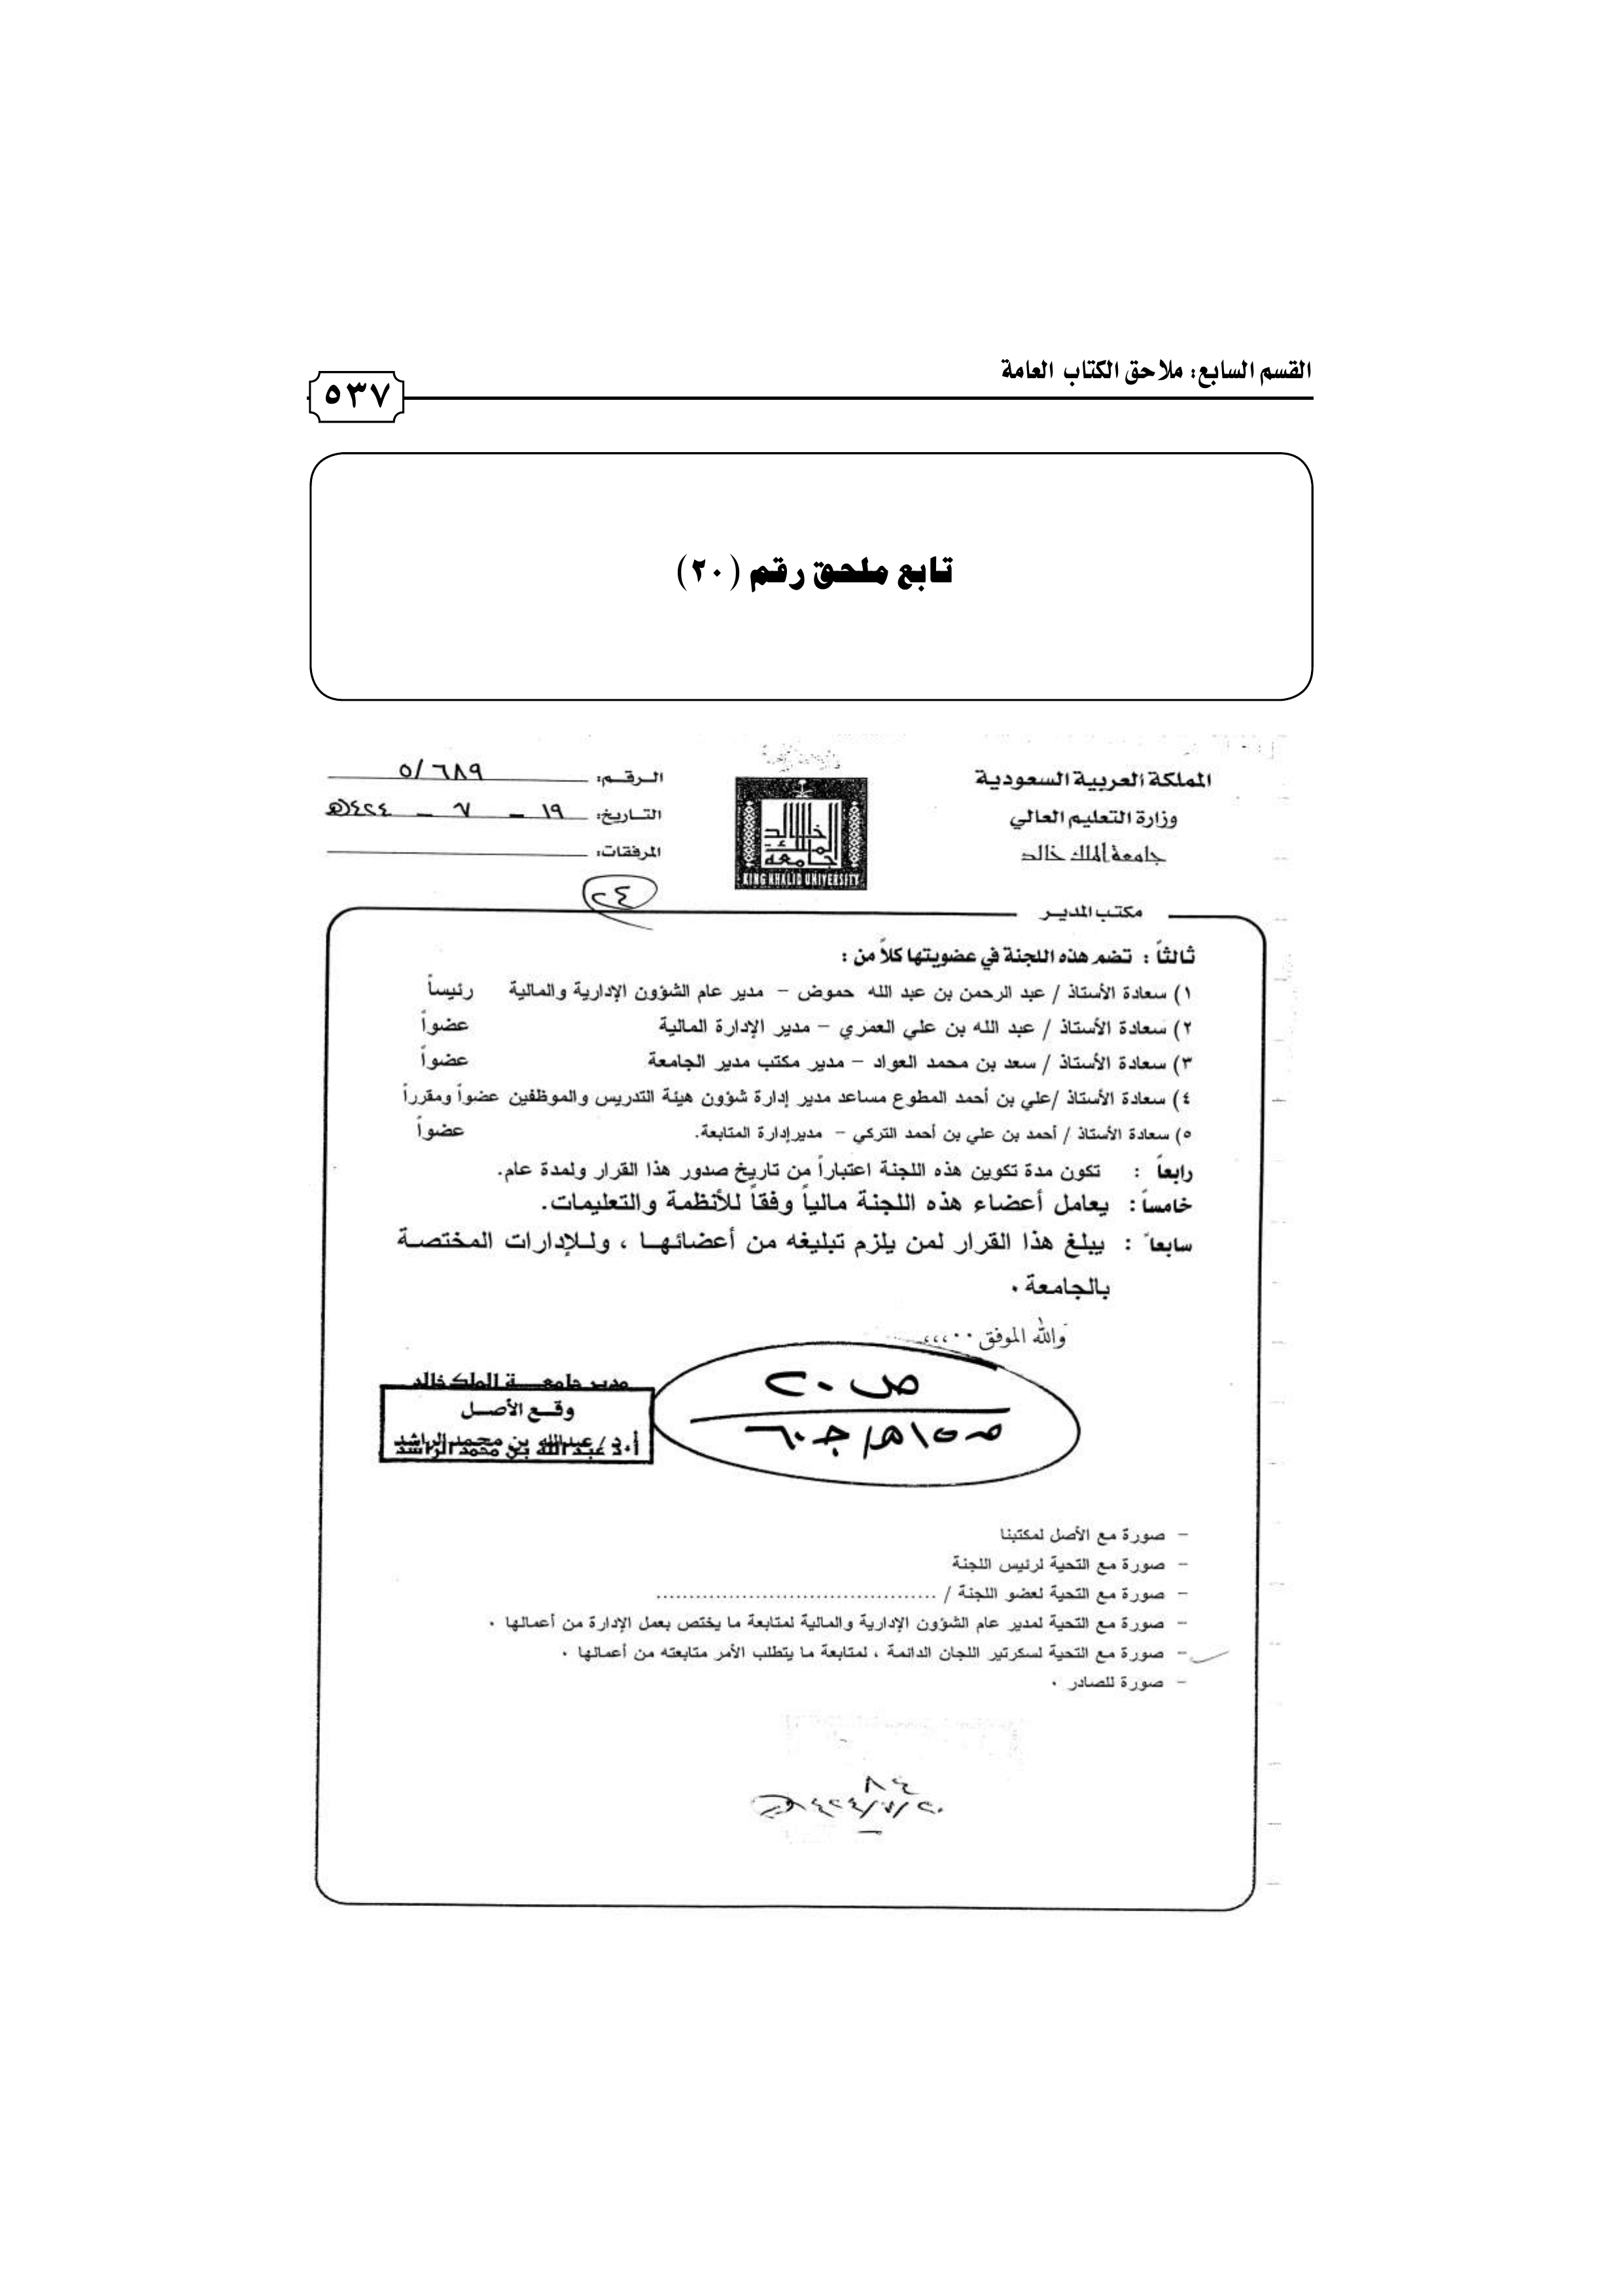 القسم السابع: ملاحق الكتاب العامة
٥٣٧
تابع ملحق رقم (٢٠)
المملكة العربية السعودية
وزارة التعليم العالي
جامعة الملك خالد
مكتب المدير
KING KHALID UNIVERSITY
الرقم: ٥/٦٨٩
التاريخ: ١٩ - ٧ - ٤٢٤هـ
المرفقات:
٢٤
ثالثاً : تضم هذه اللجنة في عضويتها كلاً من :
١) سعادة الأستاذ / عبد الرحمن بن عبد الله حموض - مدير عام الشؤون الإدارية والمالية رئيساً
٢) سعادة الأستاذ / عبد الله بن علي العمري - مدير الإدارة المالية عضواً
٣) سعادة الأستاذ / سعد بن محمد العواد - مدير مكتب مدير الجامعة عضواً
٤) سعادة الأستاذ /علي بن أحمد المطوع مساعد مدير إدارة شؤون هيئة التدريس والموظفين عضواً ومقرراً
٥) سعادة الأستاذ / أحمد بن علي بن أحمد التركي - مديرإدارة المتابعة. عضواً
رابعاً : تكون مدة تكوين هذه اللجنة اعتباراً من تاريخ صدور هذا القرار ولمدة عام.
خامساً : يعامل أعضاء هذه اللجنة مالياً وفقاً للأنظمة والتعليمات.
سابعاً : يبلغ هذا القرار لمن يلزم تبليغه من أعضائها ، وللإدارات المختصة
بالجامعة .
والله الموفق ..،،،،
مدير جامعة الملك خالد
وقع الأصل
أ.د/ عبدالله بن محمد الراشد
ص ٢٠
- صورة مع الأصل لمكتبنا
- صورة مع التحية لرئيس اللجنة
- صورة مع التحية لعضو اللجنة / ..........................................
- صورة مع التحية لمدير عام الشؤون الإدارية والمالية لمتابعة ما يختص بعمل الإدارة من أعمالها .
- صورة مع التحية لسكرتير اللجان الدائمة ، لمتابعة ما يتطلب الأمر متابعته من أعمالها .
- صورة للصادر .